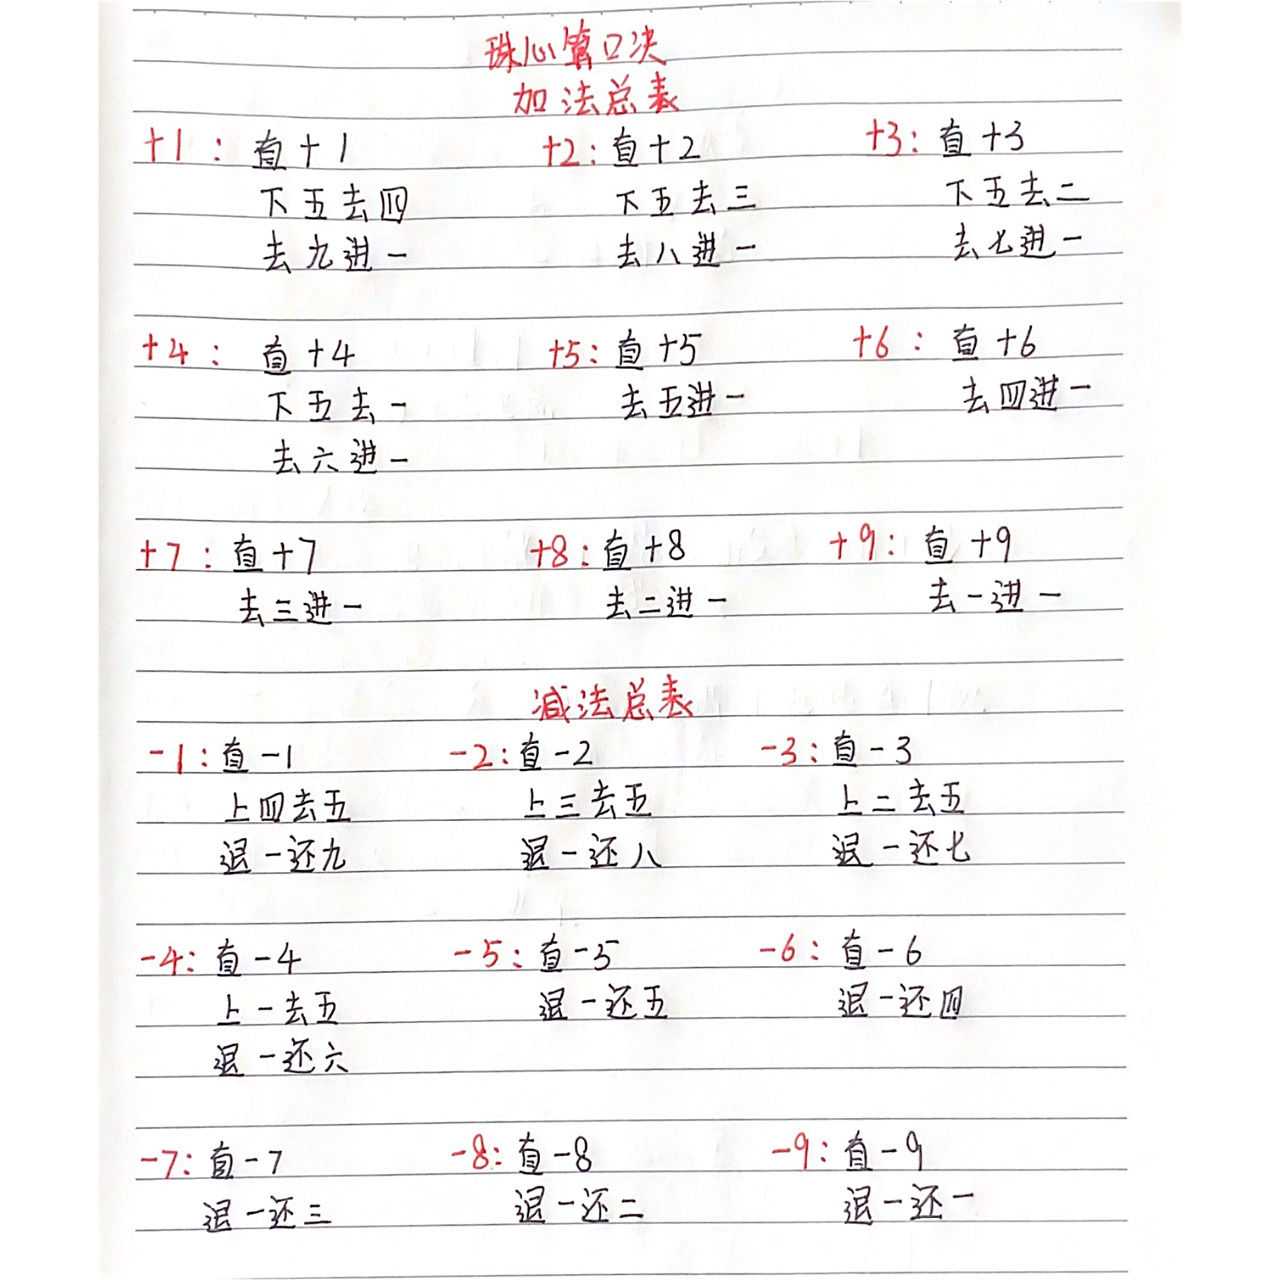 珠心算口决
加法总表
+1: 直+1 +2: 直+2 +3: 直+3
下五去四 下五去三 下五去二
去九进一 去八进一 去七进一
+4: 直+4 +5: 直+5 +6: 直+6
下五去一 去五进一 去四进一
去六进一
+7: 直+7 +8: 直+8 +9: 直+9
去三进一 去二进一 去一进一
减法总表
-1: 直-1 -2: 直-2 -3: 直-3
上四去五 上三去五 上二去五
退一还九 退一还八 退一还七
-4: 直-4 -5: 直-5 -6: 直-6
上一去五 退一还五 退一还四
退一还六
-7: 直-7 -8: 直-8 -9: 直-9
退一还三 退一还二 退一还一